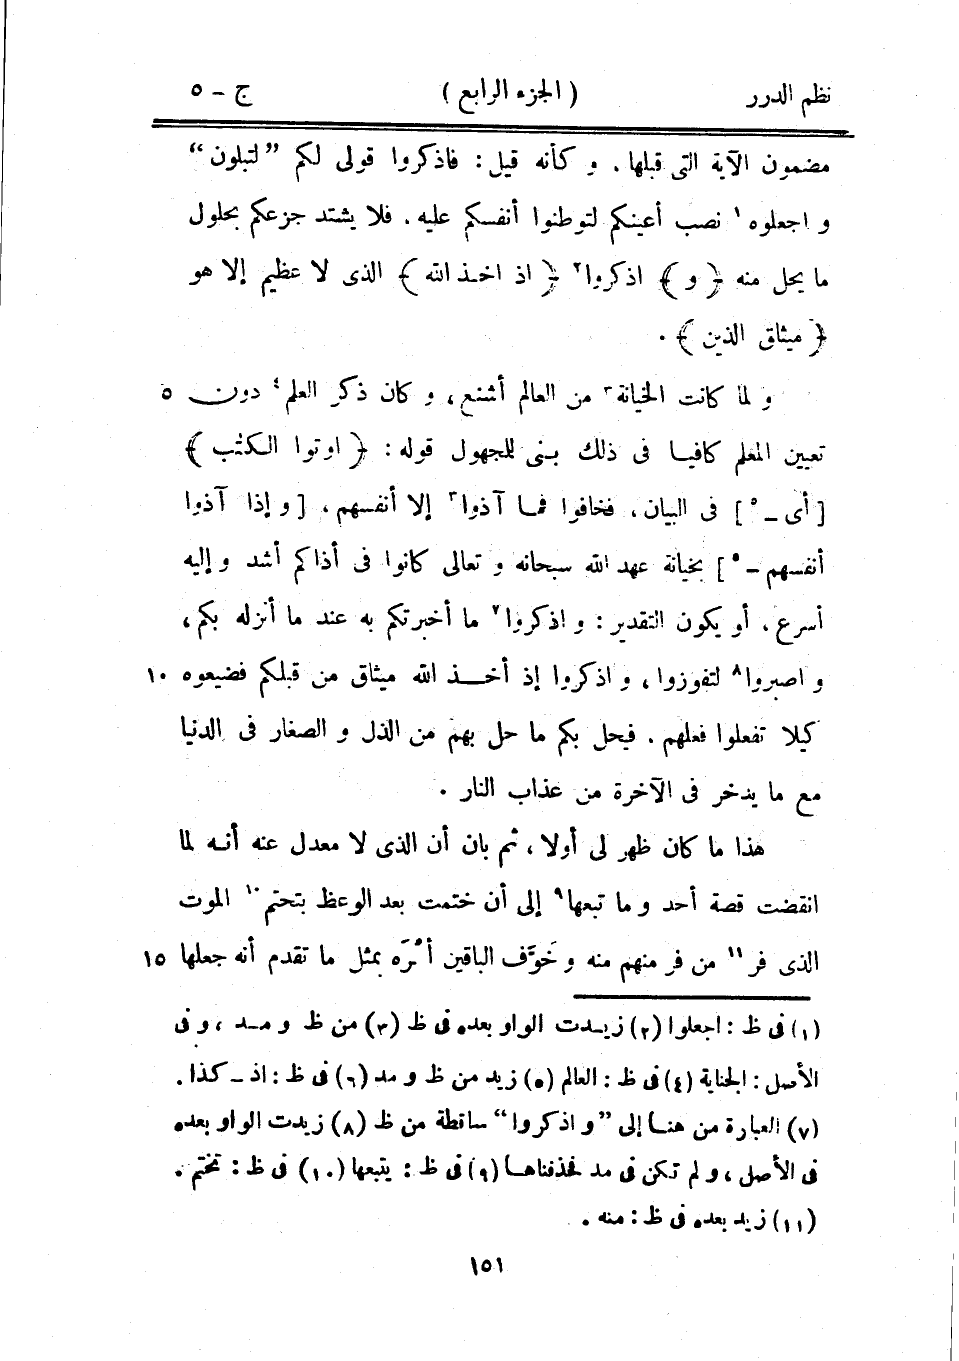 نظم الدرر ( الجزء الرابع ) ج - ٥
مضمون الآية التى قبلها . و كأنه قيل : فاذكروا قولى لكم ”لتبلون“
و اجعلوه١ نصب أعينكم لتوطنوا أنفسكم عليه . فلا يشتد جزعكم بحلول
ما يحل منه ﴿ و ﴾ اذكروا٢ ﴿ اذ اخذ الله ﴾ الذى لا عظيم إلا هو
﴿ ميثاق الذين ﴾ .
و لما كانت الخيانة٣ من العالم أشنع ، و كان ذكر العلم٤ دون ٥
تعيين المعلم كافيا فى ذلك بنى للجهول قوله : ﴿ اوتوا الكتٰب ﴾
[ أى -٥ ] فى البيان ، فخافوا فما آذوا٣ إلا أنفسهم ، [ و إذا آذوا
أنفسهم -٥ ] بخيانة عهد الله سبحانه و تعالى كانوا فى أذاكم أشد و إليه
أسرع . أو يكون التقدير : و اذكروا٧ ما أخبرتكم به عند ما أنزله بكم ،
و اصبروا٨ لتفوزوا ، و اذكروا إذ أخذ الله ميثاق من قبلكم فضيعوه ١٠
كيلا تفعلوا فعلهم . فيحل بكم ما حل بهم من الذل و الصغار فى الدنيا
مع ما يدخر فى الآخرة من عذاب النار .
هذا ما كان ظهر لى أولا ، ثم بان أن الذى لا معدل عنه أنه لما
انقضت قصة أحد و ما تبعها٩ إلى أن ختمت بعد الوعظ بتحتم١٠ الموت
الذى فر١١ من فر منهم منه و خَوَّف الباقين أمْرَه بمثل ما تقدم أنه جعلها ١٥
(١) فى ظ : اجعلوا (٢) زيدت الواو بعده فى ظ (٣) من ظ و مد ، و فى
الأصل : الجناية (٤) فى ظ : العالم (٥) زيد من ظ و مد (٦) فى ظ : اذ - كذا .
(٧) العبارة من هنا إلى ”و اذكروا“ ساقطة من ظ (٨) زيدت الواو بعده
فى الأصل ، و لم تكن فى مد فحذفناها (٩) فى ظ : يتبعها (١٠) فى ظ : تختم .
(١١) زيد بعده فى ظ : منه .
١٥١